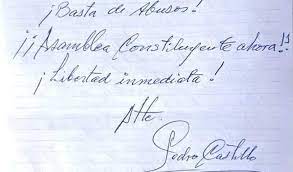 ¡Basta de Abusos!
¡¡Asamblea Constituyente ahora!!
¡Libertad inmediata!
Atte.
Pedro Castillo